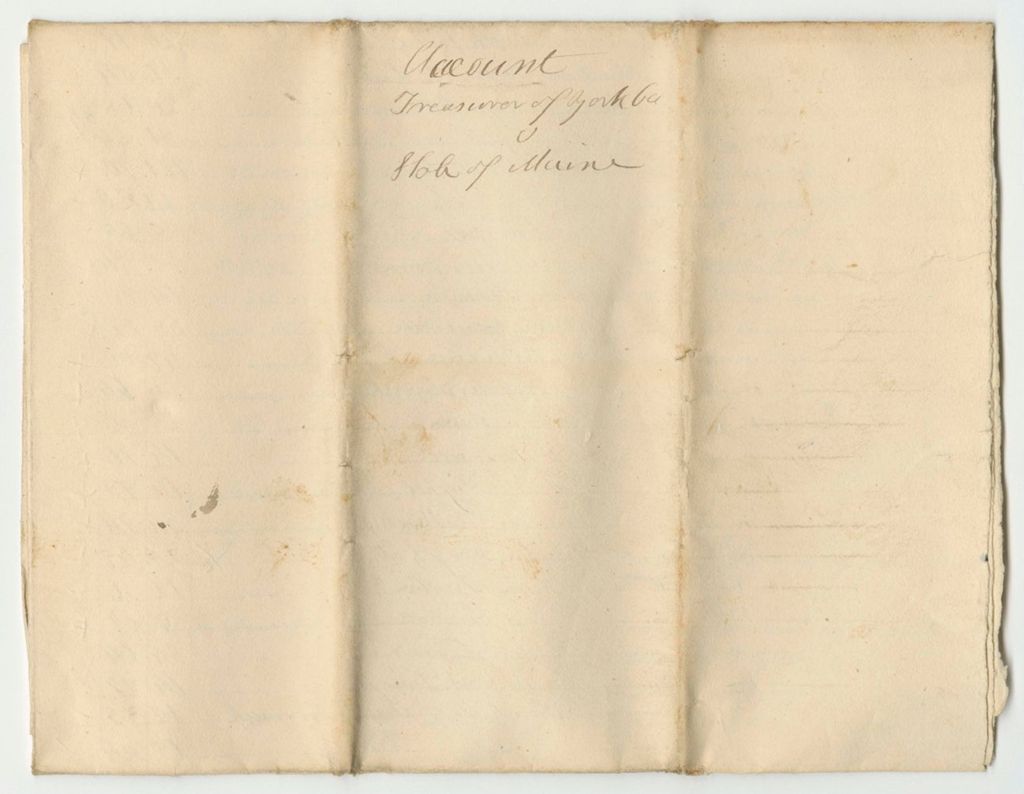 Account
Treasurer of York Co
State of Maine